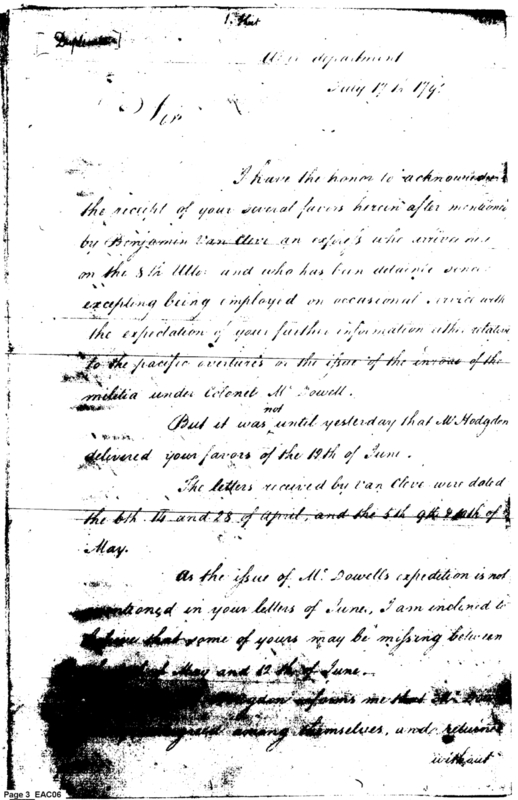 Duplicate
department
July 17th 179
Sir
I have the honor to acknowledge
the receipt of your several favors herein after mentioned
by Benjamin Van Cleve an express who arrived
on the 8th Ulto and who has been detained since
excepting being employed on occasional service with
the expectation of your further information either relative
to the pacific overtures or the issue of the inroad of the
militia under Colonel McDowell.
But it was not until yesterday that Mr Hodgdon
delivered your favors of the 12th of June.
The letters received by Van Cleve were dated
the 6th 14 and 28 of April, and the 5th 9th & 10th of
May.
As the issue of McDowells expedition is not
mentioned in your letters of June, I am inclined to
believe that some of yours may be missing between
May and 12th of June.
Hogdon informs me that
among themselves, and returned
without
Page 3 EAC06